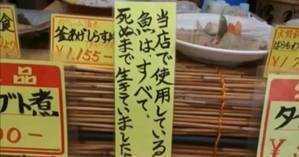 食
釜あげしらす
￥1,155-
当店で使用している
魚はすべて、
死ぬまで生きていました
品
ブト煮
00-
￥1
タ